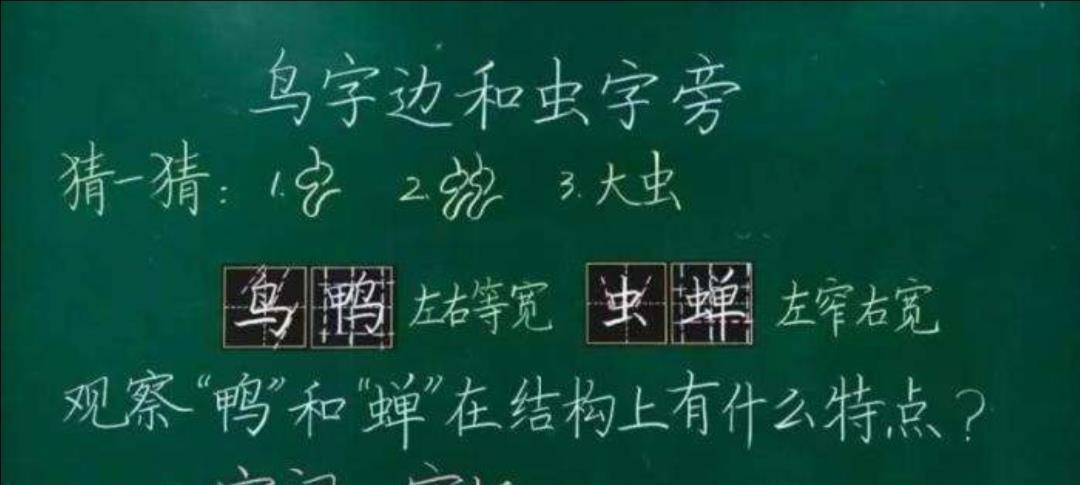 鸟字边和虫字旁
猜一猜：1. 2. 3.大虫
鸟鸭左右等宽 虫蝉左窄右宽
观察“鸭”和“蝉”在结构上有什么特点？